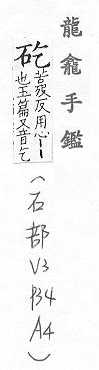 龍龕手鑑
矻
苦反用心丨丨
也玉篇又音乞
(石部 V3 P34 A4)